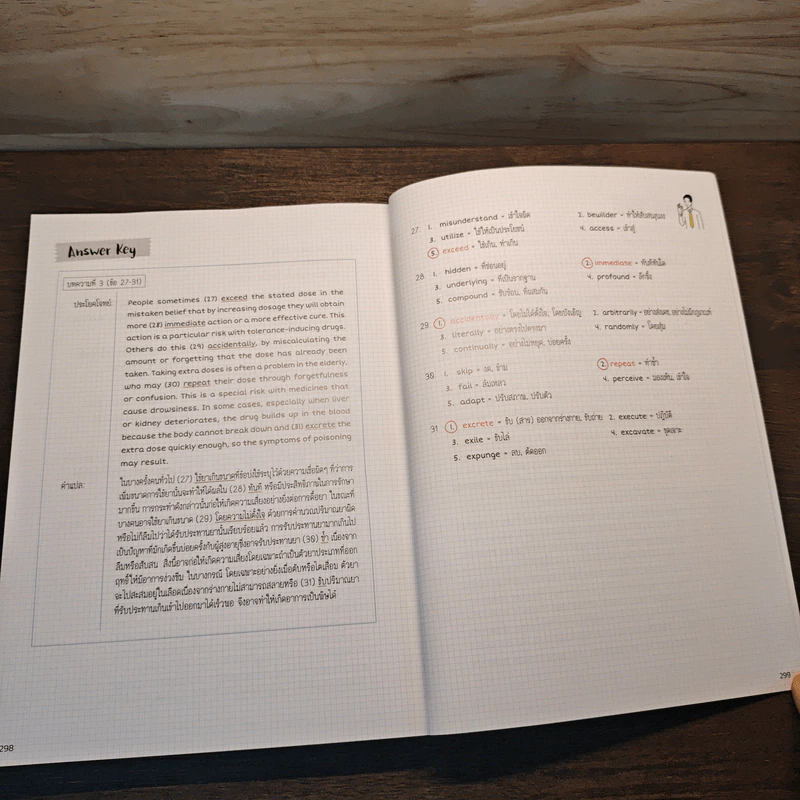 Answer Key
บทความที่ 3 (ข้อ 27-31)
ประโยคโจทย์:
People sometimes (27) exceed the stated dose in the
mistaken belief that by increasing dosage they will obtain
more (28) immediate action or a more effective cure. This
action is a particular risk with tolerance-inducing drugs.
Others do this (29) accidentally, by miscalculating the
amount or forgetting that the dose has already been
taken. Taking extra doses is often a problem in the elderly,
who may (30) repeat their dose through forgetfulness
or confusion. This is a special risk with medicines that
cause drowsiness. In some cases, especially when liver
or kidney deteriorates, the drug builds up in the blood
because the body cannot break down and (31) excrete the
extra dose quickly enough, so the symptoms of poisoning
may result.
คำแปล:
ในบางครั้งคนทั่วไป (27) ใช้ยาเกินขนาดที่ข้อบ่งใช้ระบุไว้ด้วยความเชื่อผิดๆ ที่ว่าการ
เพิ่มขนาดการใช้ยานั้นจะทำให้ได้ผลใน (28) ทันที หรือมีประสิทธิภาพในการรักษา
มากขึ้น การกระทำดังกล่าวนั้นก่อให้เกิดความเสี่ยงอย่างยิ่งต่อการดื้อยา ในขณะที่
บางคนอาจใช้ยาเกินขนาด (29) โดยความไม่ตั้งใจ ด้วยการคำนวณปริมาณยาผิด
หรือไม่ก็ลืมไปว่าได้รับประทานยานั้นเรียบร้อยแล้ว การรับประทานยามากเกินไป
เป็นปัญหาที่มักเกิดขึ้นบ่อยครั้งกับผู้สูงอายุซึ่งอาจรับประทานยา (30) ซ้ำ เนื่องจาก
ลืมหรือสับสน สิ่งนี้อาจก่อให้เกิดความเสี่ยงโดยเฉพาะถ้าเป็นตัวยาประเภทที่ออก
ฤทธิ์ให้มีอาการง่วงซึม ในบางกรณี โดยเฉพาะอย่างยิ่งเมื่อตับหรือไตเสื่อม ตัวยา
จะไปสะสมอยู่ในเลือดเนื่องจากร่างกายไม่สามารถสลายหรือ (31) ขับปริมาณยา
ที่รับประทานเกินเข้าไปออกมาได้เร็วพอ จึงอาจทำให้เกิดอาการเป็นพิษได้
298
27. 1. misunderstand = เข้าใจผิด 2. bewilder = ทำให้สับสนงุนงง
3. utilize = ใช้ให้เป็นประโยชน์ 4. access = เข้าสู่
5. exceed = ใช้เกิน, ทำเกิน
28. 1. hidden = ที่ซ่อนอยู่ 2. immediate = ทันทีทันใด
3. underlying = ที่เป็นรากฐาน 4. profound = ลึกซึ้ง
5. compound = ซับซ้อน, ที่ผสมกัน
29. 1. accidentally = โดยไม่ได้ตั้งใจ, โดยบังเอิญ 2. arbitrarily = อย่างไม่มีกฎเกณฑ์
3. literally = อย่างตรงไปตรงมา 4. randomly = โดยสุ่ม
5. continually = อย่างไม่หยุด, บ่อยครั้ง
30. 1. skip = งด, ข้าม 2. repeat = ทำซ้ำ
3. fail = ล้มเหลว 4. perceive = มองเห็น, เข้าใจ
5. adapt = ปรับสภาพ, ปรับตัว
31 1. excrete = ขับ (สาร) ออกจากร่างกาย, ขับถ่าย 2. execute = ปฏิบัติ
3. exile = ขับไล่ 4. excavate = ขุดเจาะ
5. expunge = ลบ, ตัดออก
299